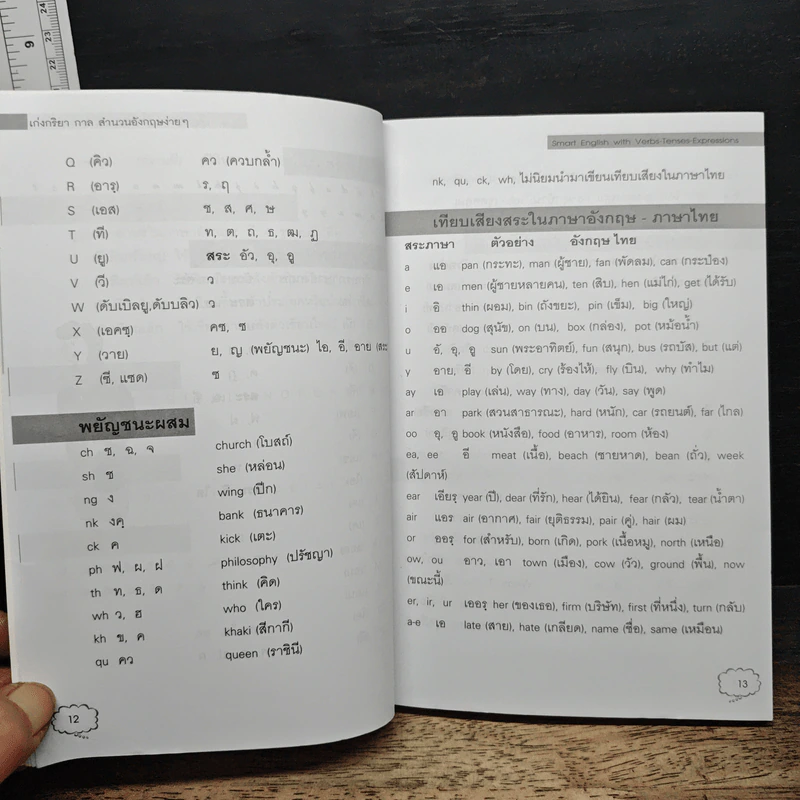 เก่งกริยา กาล สำนวนอังกฤษง่ายๆ
Q (คิว) คว (ควบกล้ำ)
R (อารุ) ร, ฤ
S (เอส) ซ, ส, ศ, ษ
T (ที) ท, ต, ถ, ธ, ฒ, ฏ
U (ยู) สระ อัว, อุ, อู
V (วี) ว
W (ดับเบิลยู,ดับบลิว) ว
X (เอคซุ) คซ, ซ
Y (วาย) ย, ญ (พยัญชนะ) ไอ, อี, อาย (สระ
Z (ซี, แซด) ซ
พยัญชนะผสม
ch ช, ฉ, จ church (โบสถ์)
sh ช she (หล่อน)
ng ง wing (ปีก)
nk งคุ bank (ธนาคาร)
ck ค kick (เตะ)
ph ฟ, ผ, ฝ philosophy (ปรัชญา)
th ท, ธ, ด think (คิด)
wh ว, ฮ who (ใคร)
kh ข, ค khaki (สีกากี)
qu คว queen (ราชินี)
12
Smart English with Verbs-Tenses-Expressions
nk, qu, ck, wh, ไม่นิยมนำมาเขียนเทียบเสียงในภาษาไทย
เทียบเสียงสระในภาษาอังกฤษ - ภาษาไทย
สระภาษา ตัวอย่าง อังกฤษ ไทย
a แอ pan (กระทะ), man (ผู้ชาย), fan (พัดลม), can (กระป๋อง)
e เอ men (ผู้ชายหลายคน), ten (สิบ), hen (แม่ไก่), get (ได้รับ)
i อิ thin (ผอม), bin (ถังขยะ), pin (เข็ม), big (ใหญ่)
o ออ dog (สุนัข), on (บน), box (กล่อง), pot (หม้อน้ำ)
u อั, อุ, อู sun (พระอาทิตย์), fun (สนุก), bus (รถบัส), but (แต่)
y อาย, อี by (โดย), cry (ร้องไห้), fly (บิน), why (ทำไม)
ay เอ play (เล่น), way (ทาง), day (วัน), say (พูด)
ar อา park (สวนสาธารณะ), hard (หนัก), car (รถยนต์), far (ไกล)
oo อุ, อู book (หนังสือ), food (อาหาร), room (ห้อง)
ea, ee อี meat (เนื้อ), beach (ชายหาด), bean (ถั่ว), week
(สัปดาห์)
ear เอียรุ year (ปี), dear (ที่รัก), hear (ได้ยิน), fear (กลัว), tear (น้ำตา)
air แอร air (อากาศ), fair (ยุติธรรม), pair (คู่), hair (ผม)
or ออรุ for (สำหรับ), born (เกิด), pork (เนื้อหมู), north (เหนือ)
ow, ou อาว, เอา town (เมือง), cow (วัว), ground (พื้น), now
(ขณะนี้)
er, ir, ur เออรุ her (ของเธอ), firm (บริษัท), first (ที่หนึ่ง), turn (กลับ)
a-e เอ late (สาย), hate (เกลียด), name (ชื่อ), same (เหมือน)
13
9
24
23
22